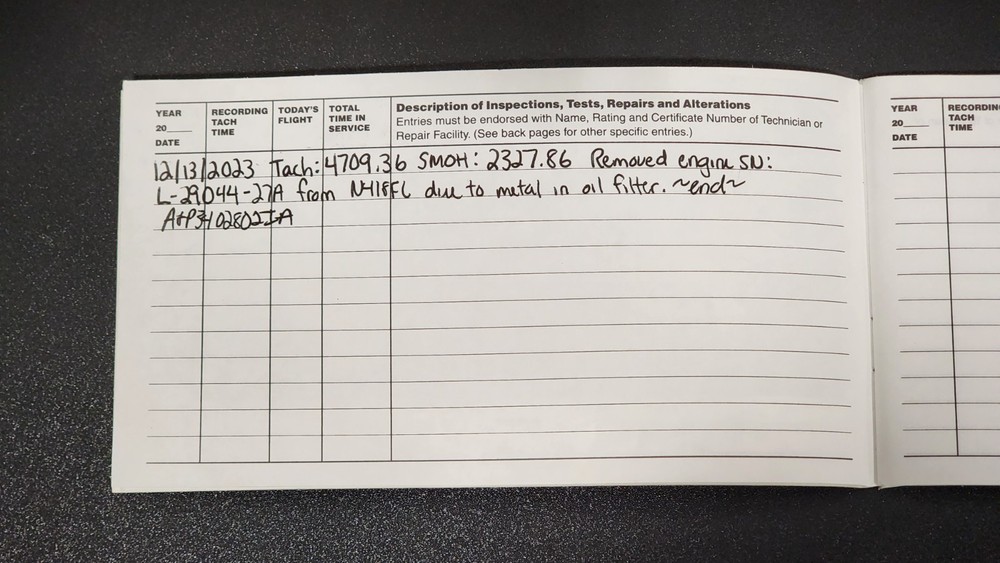 YEAR
20___
DATE
RECORDING
TACH
TIME
TODAY'S
FLIGHT
TOTAL
TIME IN
SERVICE
Description of Inspections, Tests, Repairs and Alterations
Entries must be endorsed with Name, Rating and Certificate Number of Technician or
Repair Facility. (See back pages for other specific entries.)
12/13/2023 Tach: 4709.36 SMOH: 2327.86 Removed engine SN:
L-29044-27A from N418FL due to metal in oil filter. ~end~
A+P3402802IA
YEAR
20___
DATE
RECORDIN
TACH
TIME